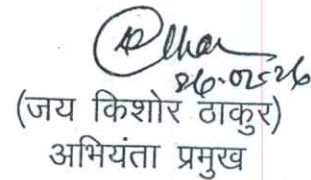 26.02.26
(जय किशोर ठाकुर)
अभियंता प्रमुख